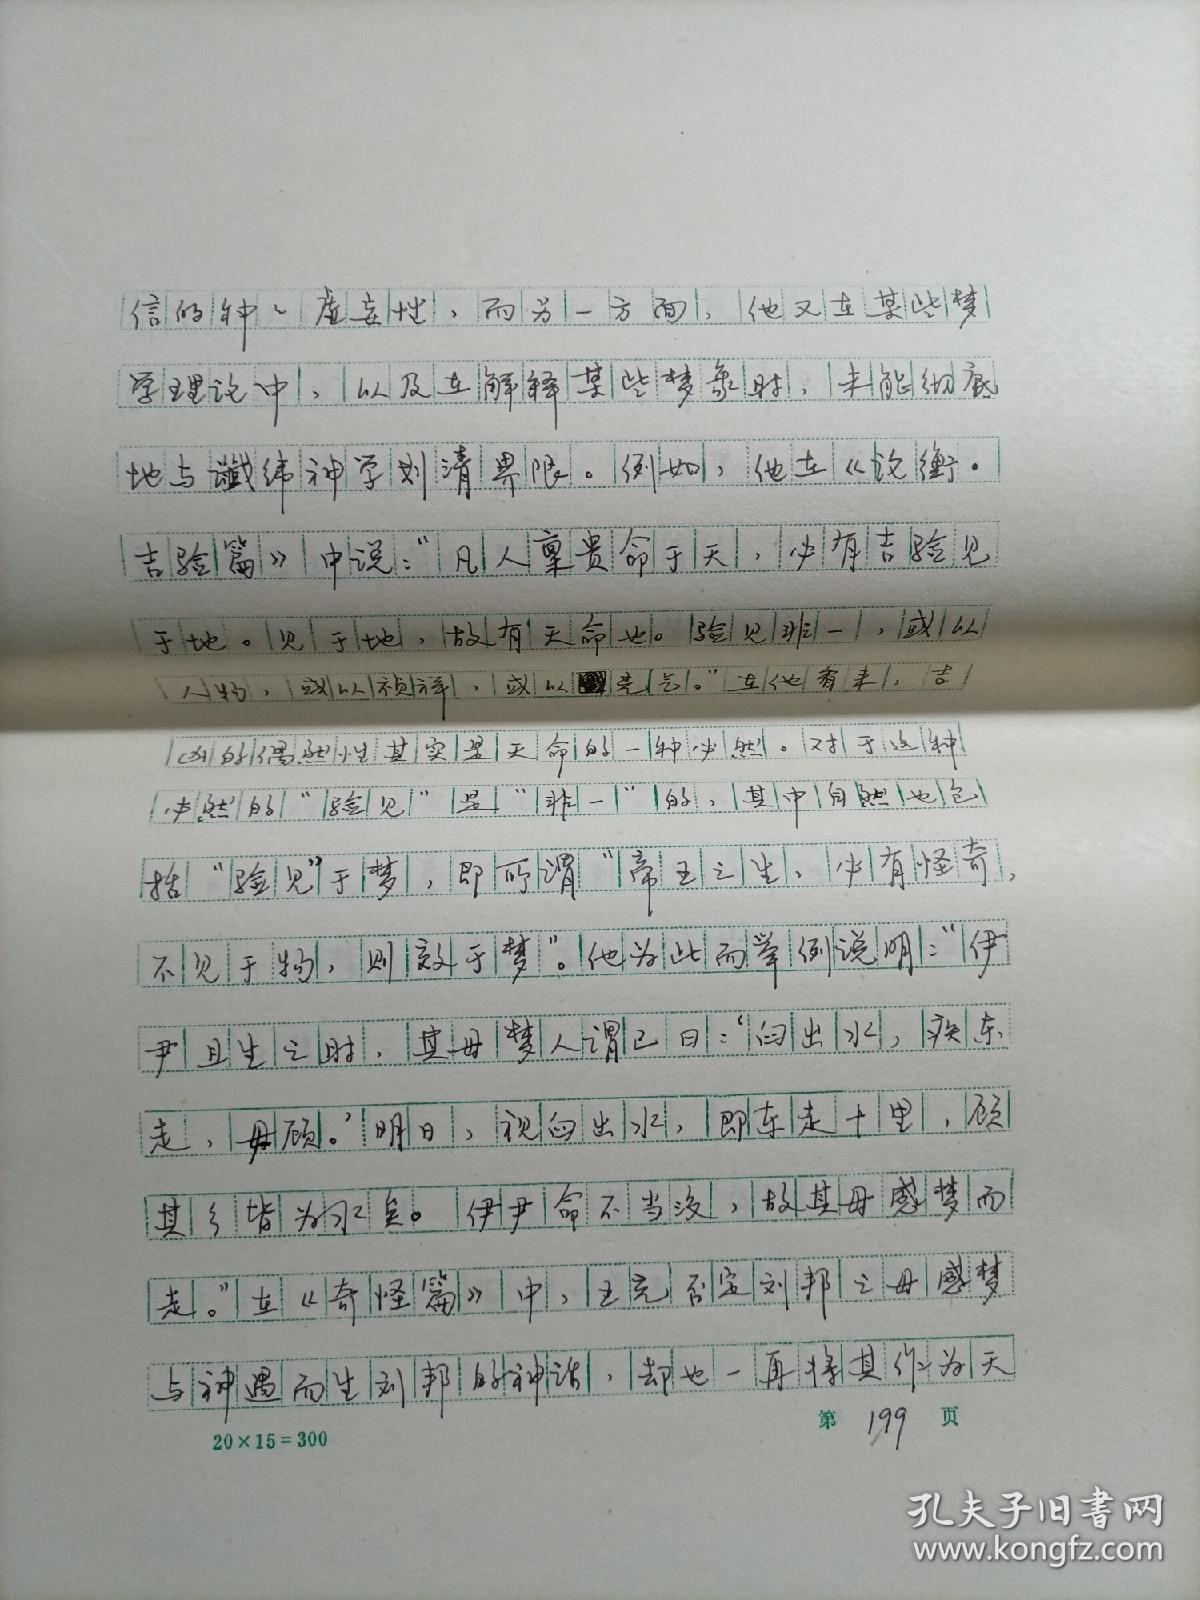 信的种〻虚妄性，而另一方面，他又在某些梦
学理论中，以及在解释某些梦象时，未能彻底
地与谶纬神学划清界限。例如，他在《论衡·
吉验篇》中说：“凡人禀贵命于天，必有吉验见
于地。见于地，故有天命也。验见非一，或以
人物，或以祯祥，或以光气。”在他看来，吉
凶的偶然性其实是天命的一种必然。对于这种
必然的“验见”是“非一”的，其中自然也包
括“验见”于梦，即所谓“帝王之生，必有怪奇，
不见于物，则效于梦”。他为此而举例说明：“伊
尹且生之时，其母梦人谓己曰：‘臼出水，疾东
走，毋顾。’明日，视臼出水，即东走十里，顾
其乡皆为水矣。伊尹命不当没，故其母感梦而
走。”在《奇怪篇》中，王充否定刘邦之母感梦
与神遇而生刘邦的神话，却也一再将其作为天
20×15=300
第 199 页
孔夫子旧书网
www.kongfz.com